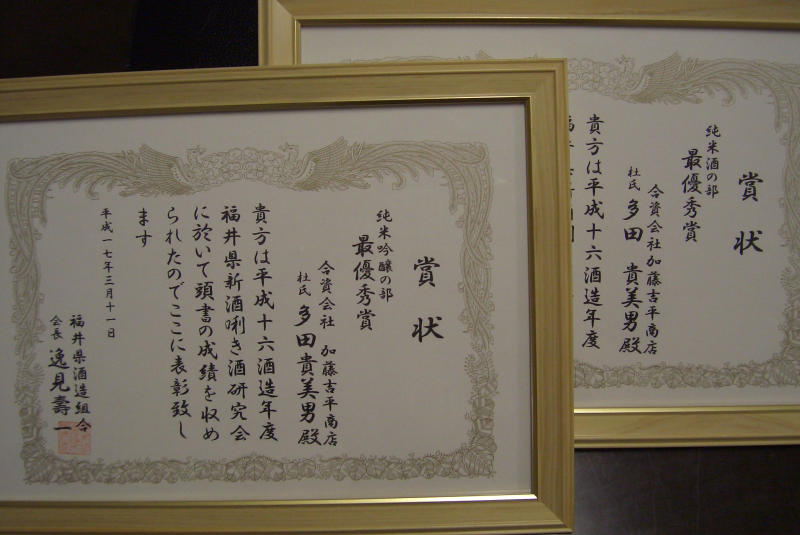 賞状
純米吟醸の部
最優秀賞
合資会社 加藤吉平商店
杜氏 多田貴美男殿
貴方は平成十六酒造年度
福井県新酒唎き酒研究会
に於いて頭書の成績を収め
られたのでここに表彰致し
ます
平成一七年三月十一日
福井県酒造組合
会長 逸見壽一
賞状
純米酒の部
最優秀賞
合資会社加藤吉平商店
杜氏 多田 貴美男殿
貴方は平成十六酒造年度